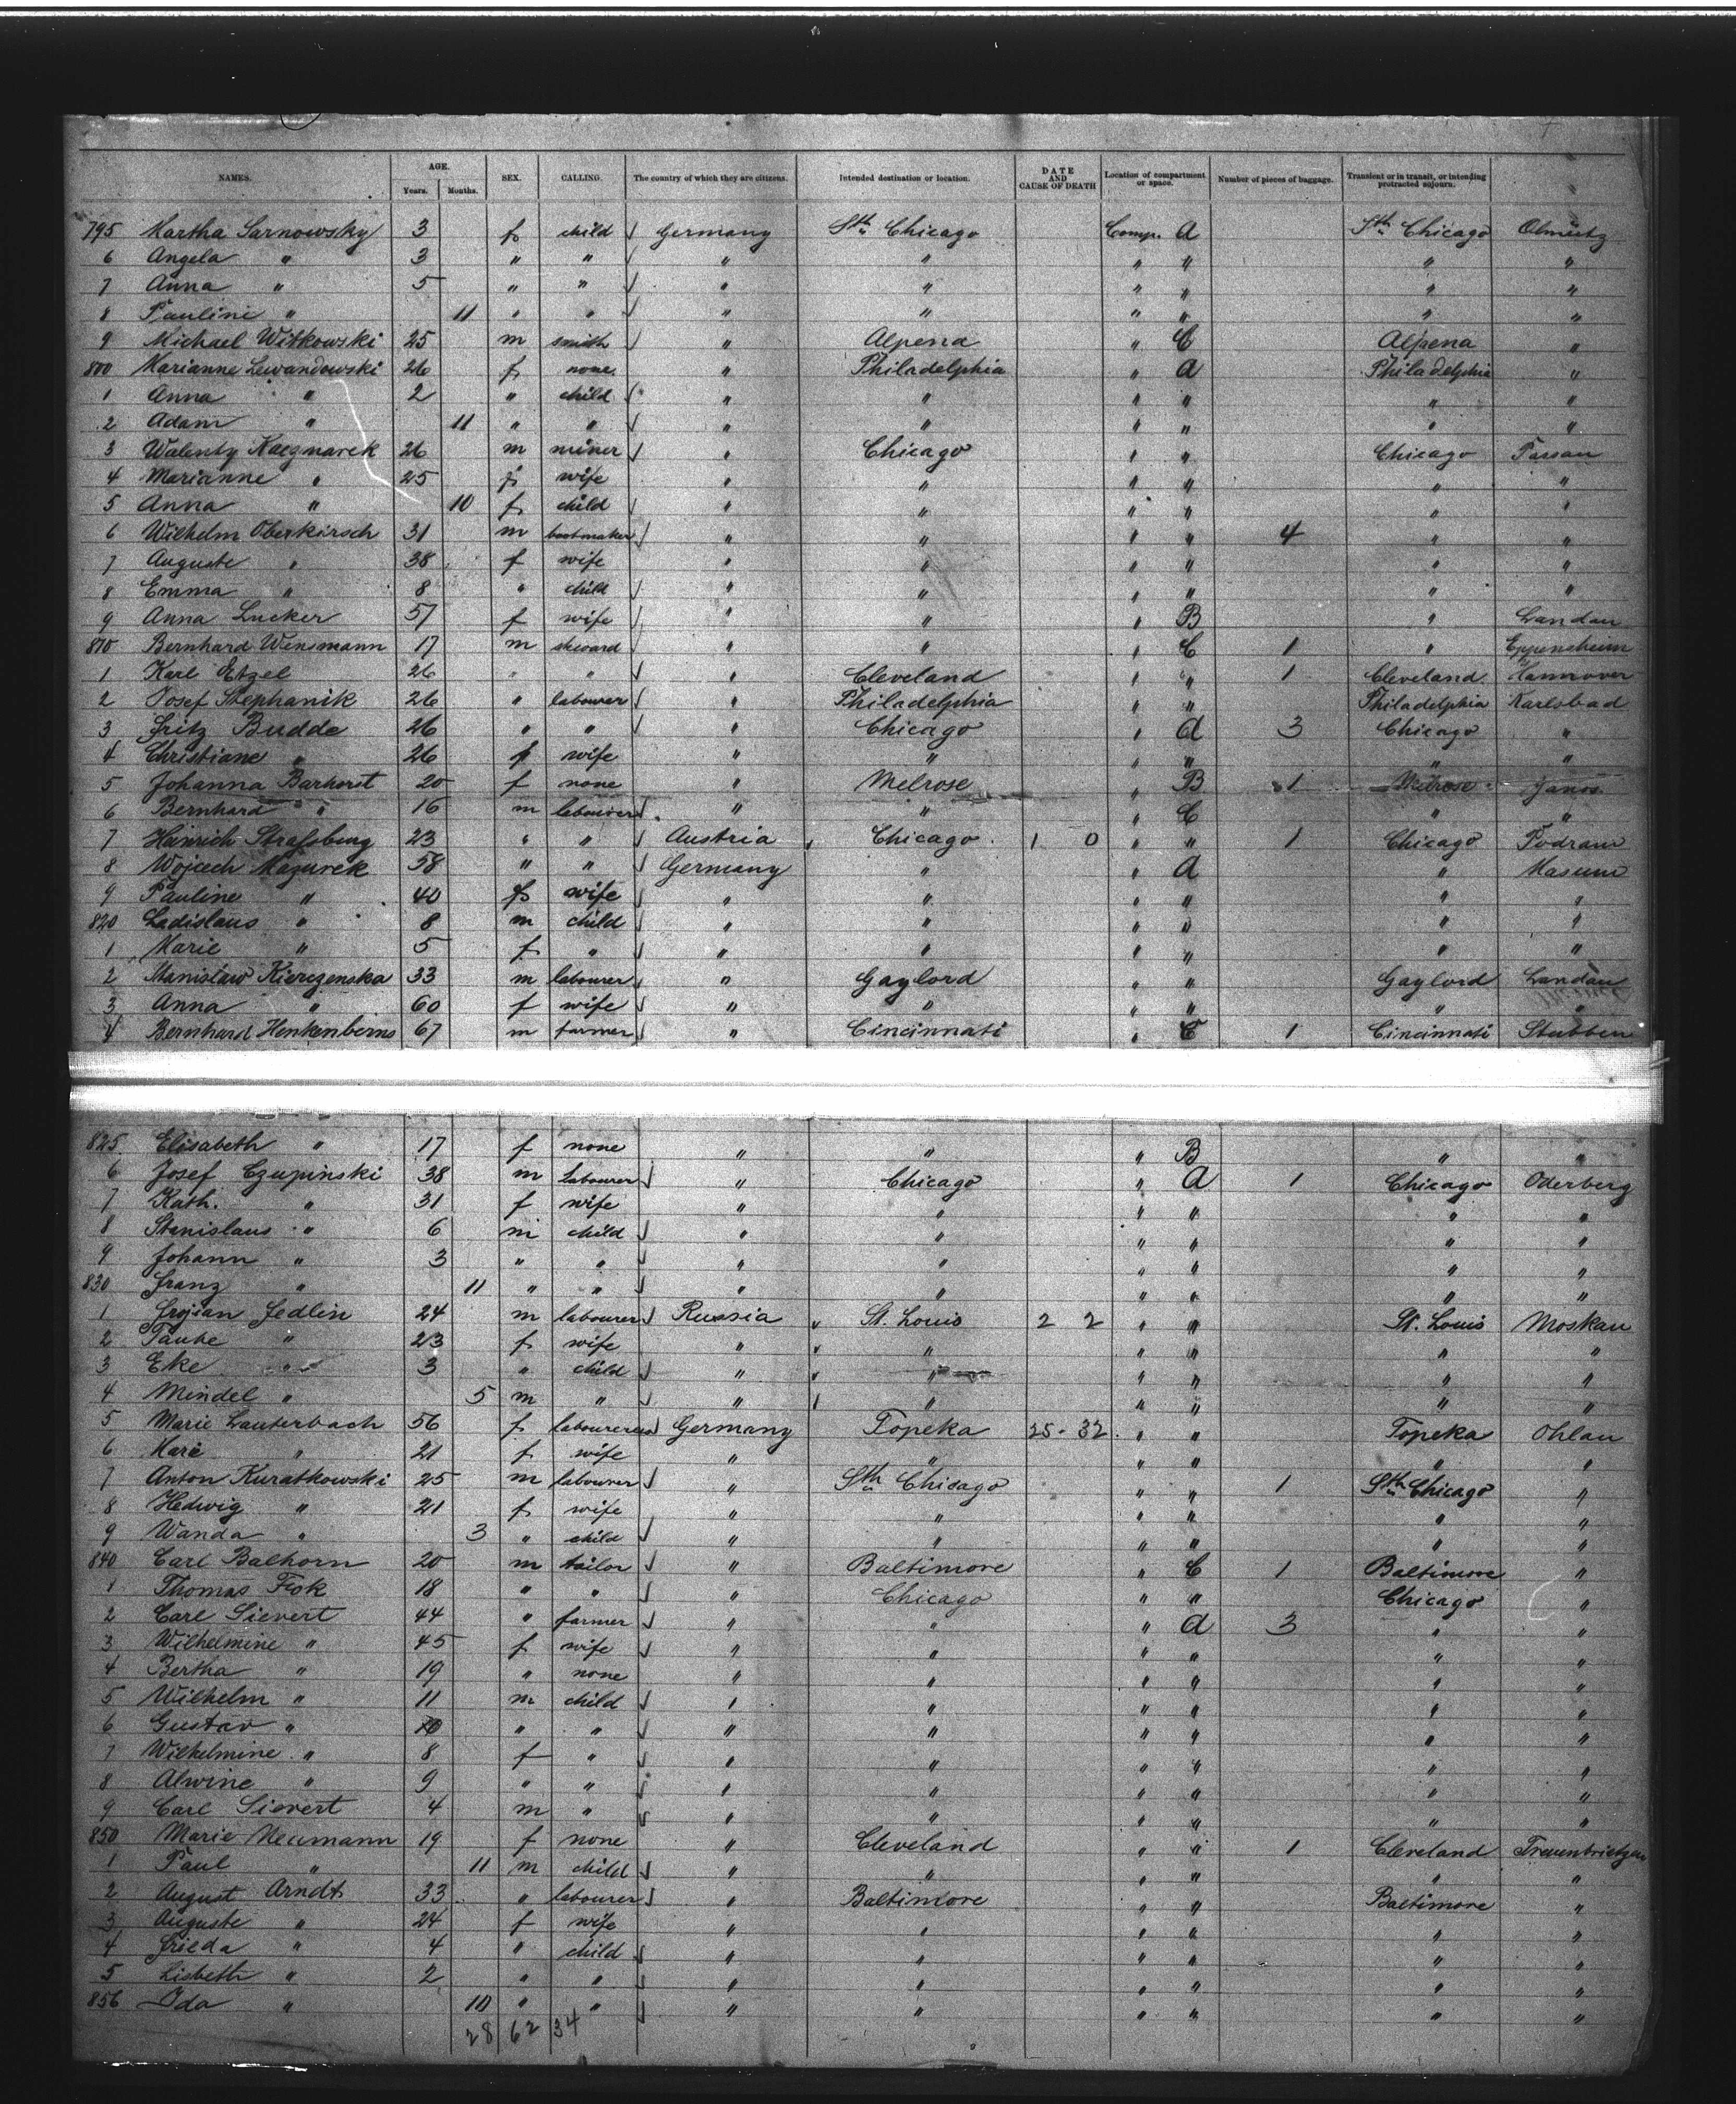 NAMES. AGE. Years. Months. SEX. CALLING. The country of which they are citizens. Intended destination or location. DATE AND CAUSE OF DEATH Location of compartment or space. Number of pieces of baggage. Transient or in transit, or intending protracted sojourn.
795 Martha Sarnowsky 3 f child Germany Sth Chicago Comp. A Sth Chicago Olmütz
6 Angela " 3 " " " " " " " "
7 Anna " 5 " " " " " " " "
8 Pauline " 11 " " " " " " " "
9 Michael Witkowski 25 m smith " Alpena " C Alpena "
800 Marianne Lewandowski 26 f none " Philadelphia " A Philadelphia "
1 Anna " 2 " child " " " " " "
2 Adam " 11 " " " " " " " "
3 Walenty Kaczmarek 26 m miner " Chicago " " Chicago Passau
4 Marianne " 25 f wife " " " " " "
5 Anna " 10 f child " " " " " "
6 Wilhelm Oberkirsch 31 m bootmaker " " " " 4 " "
7 Auguste " 38 f wife " " " " " "
8 Emma " 8 " child " " " " " "
9 Anna Lucker 57 f wife " " " B " Landau
810 Bernhard Wensmann 17 m steward " " " C 1 " Eppensheim
1 Karl Etzel 26 " " " Cleveland " " 1 Cleveland Hannover
2 Josef Stephanik 26 " labourer " Philadelphia " " Philadelphia Karlsbad
3 Fritz Budde 26 " " " Chicago " A 3 Chicago "
4 Christiane " 26 f wife " " " " " "
5 Johanna Barhorst 20 f none " Melrose " B 1 Melrose Janos
6 Bernhard " 16 m labourer " " " C " "
7 Heinrich Strassburg 23 " " Austria Chicago 1 0 " " 1 Chicago Podram
8 Wojcech Mazurek 58 " " Germany " " A " Masum
9 Pauline " 40 f wife " " " " " "
820 Ladislaus " 8 m child " " " " " "
1 Marie " 5 f " " " " " " "
2 Stanislaw Kierczenska 33 m labourer " Gaylord " " Gaylord Landau
3 Anna " 60 f wife " " " " " "
4 Bernhard Henkenberns 67 m farmer " Cincinnati " C 1 Cincinnati Stubben
825 Elisabeth " 17 f none " " " B " "
6 Josef Czupinski 38 m labourer " Chicago " A 1 Chicago Oderberg
7 Kath. " 31 f wife " " " " " "
8 Stanislaus " 6 m child " " " " " "
9 Johann " 3 " " " " " " " "
830 Franz " 11 " " " " " " " "
1 Jedlin 24 m labourer Russia St. Louis 2 2 " " St. Louis Moskau
2 Taube " 23 f wife " " " " " "
3 Eke " 3 " child " " " " " "
4 Mindel " 5 m " " " " " " "
5 Marie Lauterbach 56 f Germany Topeka 25 - 32 " " Topeka Ohlau
6 Marie " 21 f wife " " " " " "
7 Anton Kuratkowski 25 m labourer " Sth Chicago " " 1 Sth Chicago "
8 Hedwig " 21 f wife " " " " " "
9 Wanda " 3 " child " " " " " "
840 Carl Balhorn 20 m tailor " Baltimore " C 1 Baltimore "
1 Thomas Fick 18 " " " Chicago " " Chicago "
2 Carl Sievert 44 " farmer " " " A 3 " "
3 Wilhelmine " 45 f wife " " " " " "
4 Bertha " 19 " none " " " " " "
5 Wilhelm " 11 m child " " " " " "
6 Gustav " 10 " " " " " " " "
7 Wilhelmine " 8 f " " " " " " "
8 Alwine " 9 " " " " " " " "
9 Carl Sievert 4 m " " " " " " "
850 Marie Neumann 19 f none " Cleveland " " 1 Cleveland Treuenbrietzen
1 Paul " 11 m child " " " " " "
2 August Arndt 33 " labourer " Baltimore " " Baltimore "
3 Auguste " 24 f wife " " " " " "
4 Frieda " 4 " child " " " " " "
5 Lisbeth " 2 " " " " " " " "
856 Ida " 10 " " " " " " " "
28 62 34